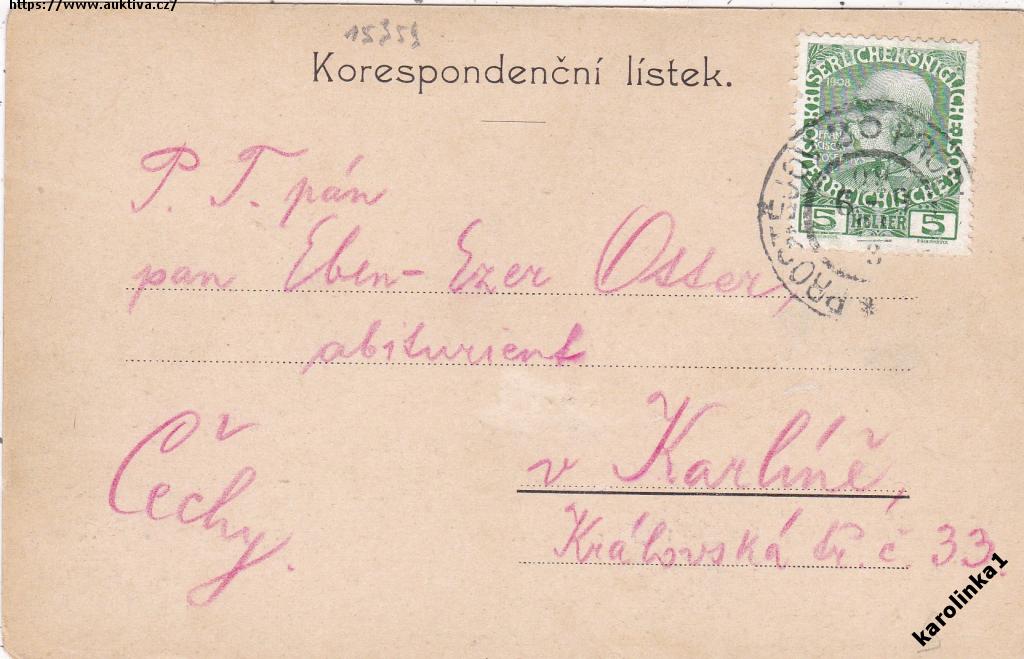 https://www.auktiva.cz/
15359
Korespondenční lístek.
KAISERLICHE KÖNIGLICHE ÖSTERREICHISCHE
1908
5 HELLER 5
PROSTĚJOV
P. T. pán
pan Eben-Ezer Osser,
abiturient
v Karlíně,
Čechy.
Královská tř. č. 33.
karolinka1